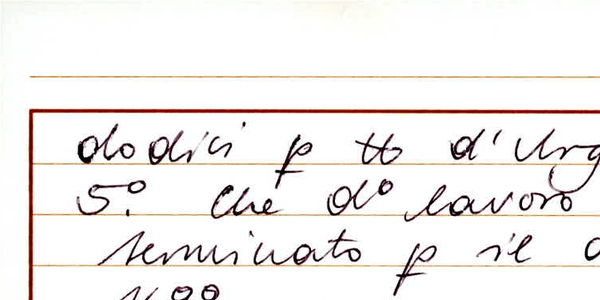 dodici p tto d'Urg
5.º che dº lavoro
terminato p il